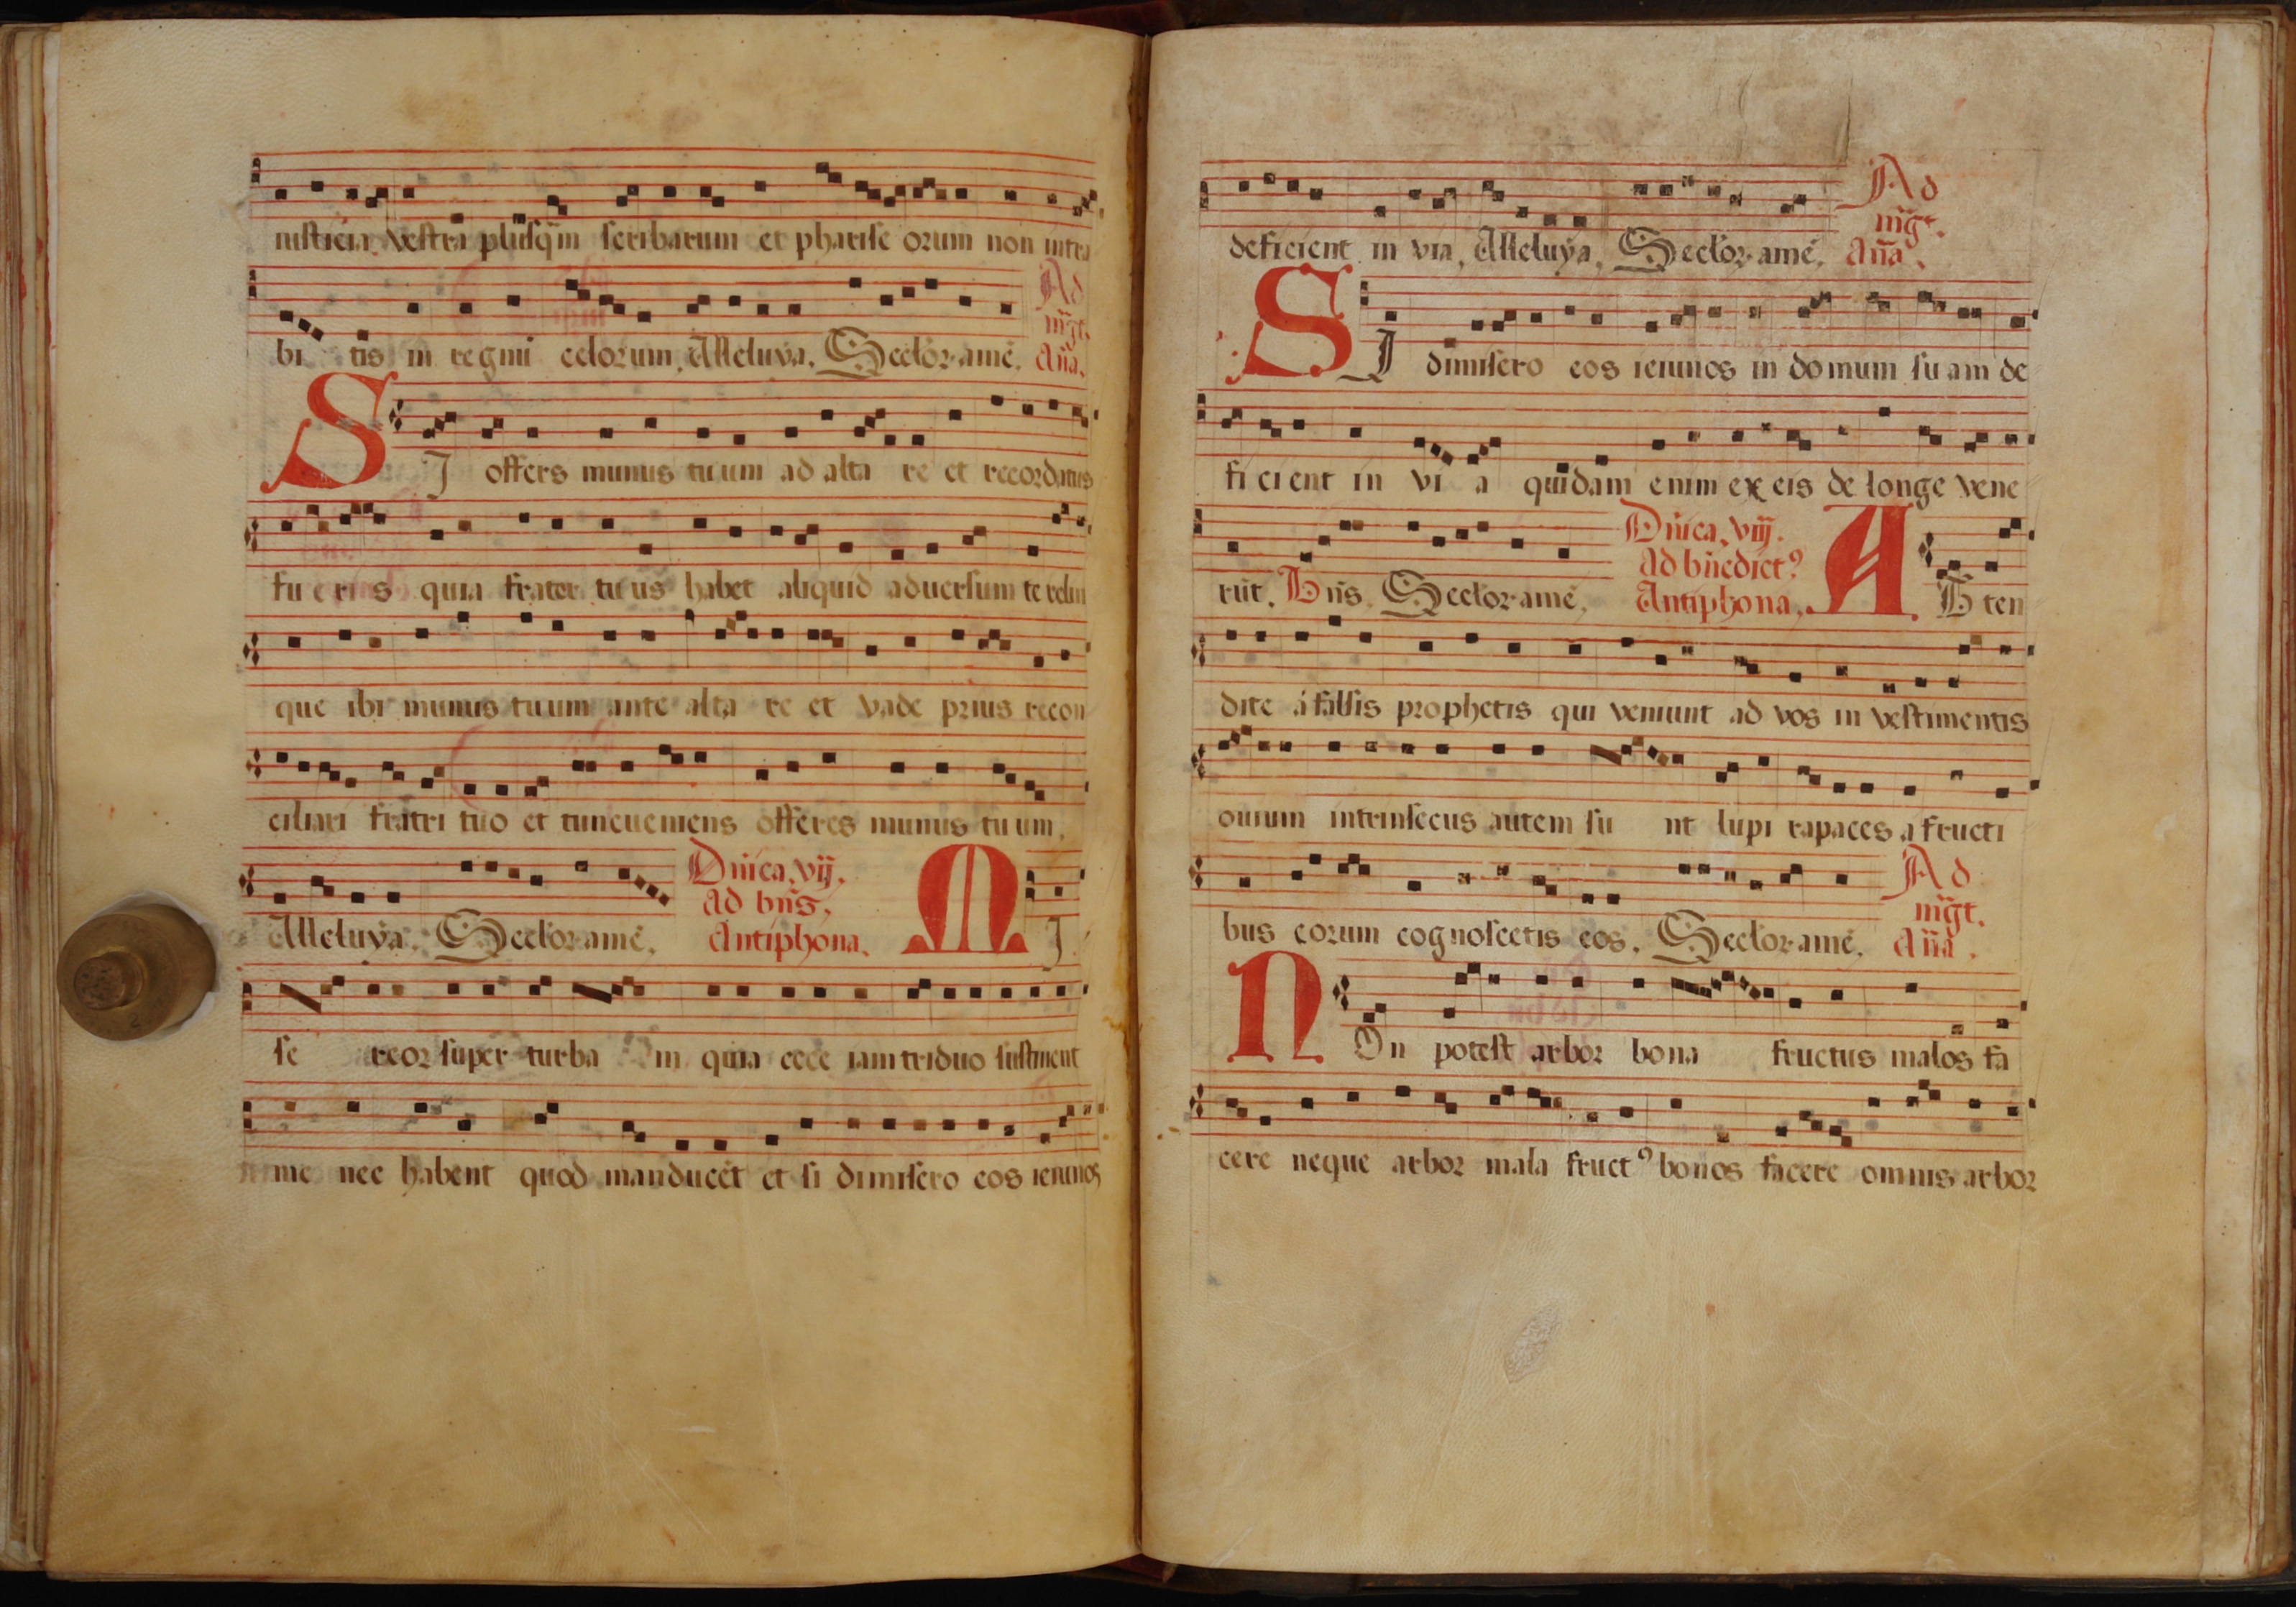 iusticia vestra plusq̃m scribarum et pharise orum non intra
bi tis in regnũ celorum, Alleluya. Seclor. amẽ. Ad mg̃t. Añã.
SI offers munus tuum ad alta re et recordatus
fu e ri s quia frater tu us habet aliquid aduersum te relin
que ibi munus tuum ante alta re et vade prius recon
ciliari fratri tuo et tunc veniens offeres munus tu um.
Alleluya. Seclor. amẽ. Dñica. vij. ad bñs. Antiphona. MI
se reor super turba m quia ecce iam triduo sustinent
me nec habent quod manducẽt et si dimisero eos ieiunos
deficient in via, Alleluya, Seclor. amẽ. Ad mg̃t. Añã.
SI dimisero eos ieiunos in domum su am de
fi ci ent in vi a quidam enim ex eis de longe vene
rũt. Bñs. Seclor. amẽ, Dñica. viij. ad bñedict? Antiphona. A Tten
dite á falsis prophetis qui veniunt ad vos in vestimentis
ouium intrinsecus autem su nt lupi rapaces a fructi
bus eorum cognoscetis eos. Seclor. amẽ. Ad mg̃t. Añã.
NOn potest arbor bona fructus malos fa
cere neque arbor mala fruct⁹ bonos facere omnis arbor